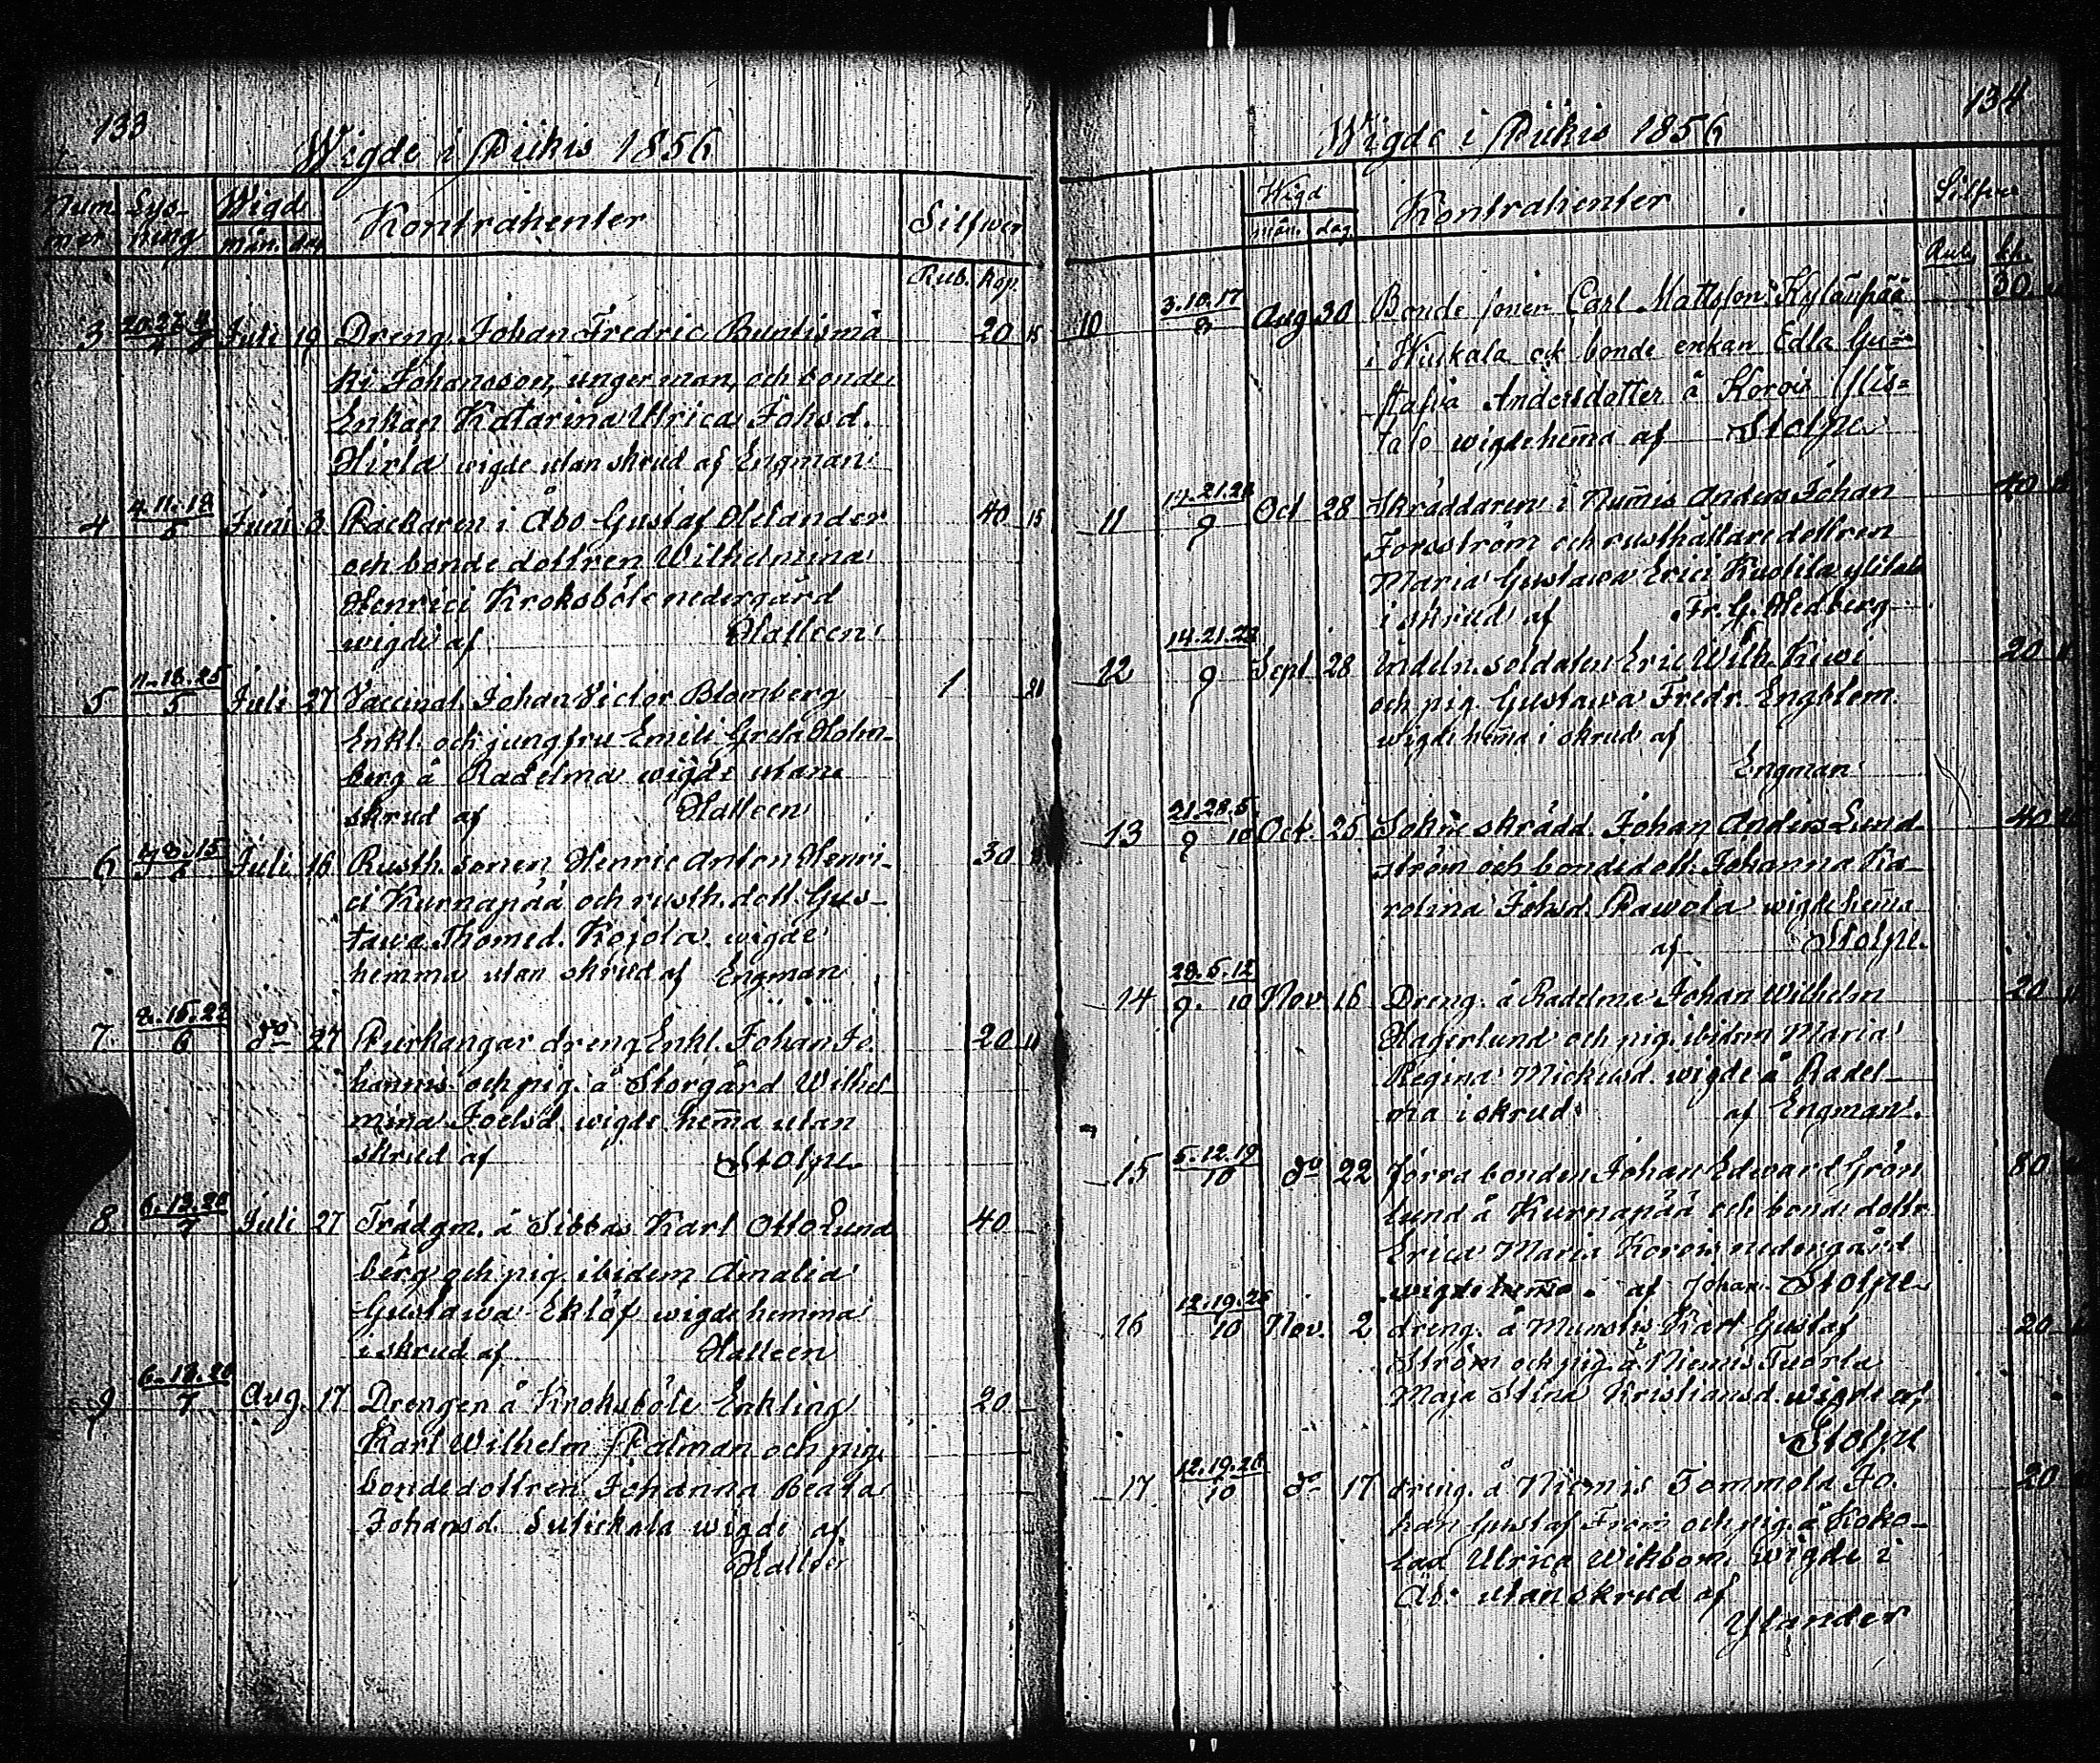 133
Wigde i Piikis 1856
Num- Lys- Wigd Kontrahenter Silfwer
mer ning mån. dag
Rub. Kop.
3 20.27.4 Juli 19 Dreng. Johan Fredric Buntismä 20 15
ki Johansson, unger man, och bonde
Enkan Katarina Ulrica Johsd.
Hirla wigde utan skrud af Engman
4 4.11.18 Juni 3 Rackaren i Åbo Gustaf Helander 40 15
5
och bonde dottren Wilhelmina
Henrici Kroksböle nedergård
wigde af Halleen
5 11.18.25 Juli 27 Vaccinat. Johan Victor Blomberg 1 21
5
Enkl. och jungfru Emili Greta Holm-
berg å Radelma wigde utan
skrud af Halleen
6 8.15 Juli 16 Rusth. sonen Henric Anton Henri- 30
ci Kurnapää och rusth. dott. Gus-
tawa Thomed. Kojola. wigde
hemma utan skrud af Engman
7. 8.15.22 do 27 dreng Enkl. Johan Jo- 20
6
hannis och pig. å Storgård Wilhel-
mina Joelsd. wigde hem̄a utan
skrud af Stolpe
8 6.13.20 Juli 27 Trädgm. å Tibbas Karl Otto Lund 40
7
berg och pig. ibidem Amalia
Gustawa Eklöf wigde hemma
i skrud af Halleen
9 6.13.20 Aug. 17 Drengen å Kroksböle Enkling 20
7
Karl Wilhelm Palman och pig.
bondedottren Johanna Beata
Johansd. wigde af
Halleen
134
Wigde i Piikis 1856
Wigd Kontrahenter Silfver
mån. dag
Rub. kp.
10 3.10.17 Aug 30 Bonde sonen Carl Mattsson Kylänpää 30
8
i Hukala och bonde enkan Edla Gu=
stafva Andersdotter å Korois Ylis=
talo wigde hem̄a af Stolpe
11 14.21.28 Oct 28 Skräddaren i Num̄is Anders Johan 40
9
Forsström och rusthållare dottren
Maria Gustawa Erici Kustila
i skrud af Fr. G. Hedberg
12 14.21.28 Sept 28 Indeln. soldaten Eric Wilh. Kiwi 20
9
och pig. Gustawa Fredr. Engblom.
wigde hem̄a i skrud af
Engman
13 21.28.5. Oct. 25 Sokne skrädd. Johan Anders Lund- 40
9 10
ström och bondedott. Johanna Ka-
rolina Johsd. Pawola wigde hem̄a
af Stolpe.
14 28.5.12 Nov. 16 Dreng. å Radelma Johan Wilhelm 20
9. 10
Hagerlund och pig. ibidem Maria
Regina Mickusd. wigde å Radel-
ma i skrud af Engman.
15 5.12.19 do 22 förra bonden Johan Edward Grön- 80
10
lund å Kurnapää och bonde dottr.
Erica Maria Korois nedergård
wigde hem̄a. af Johan Stolpe
16 12.19.26 Nov. 2 dreng. å Munstis Karl Gustaf 20
10
Ström och pig. å Niemis Tuorla
Maja Stina Kristiansd. wigde af
Stolpe
17 12.19.26 do 17 dreng. å Niemis Tommola Jo- 20
10
han Gustaf From och pig. å Koko-
Ulrica Wikbom. wigde i
Åbo utan skrud af
Ylander